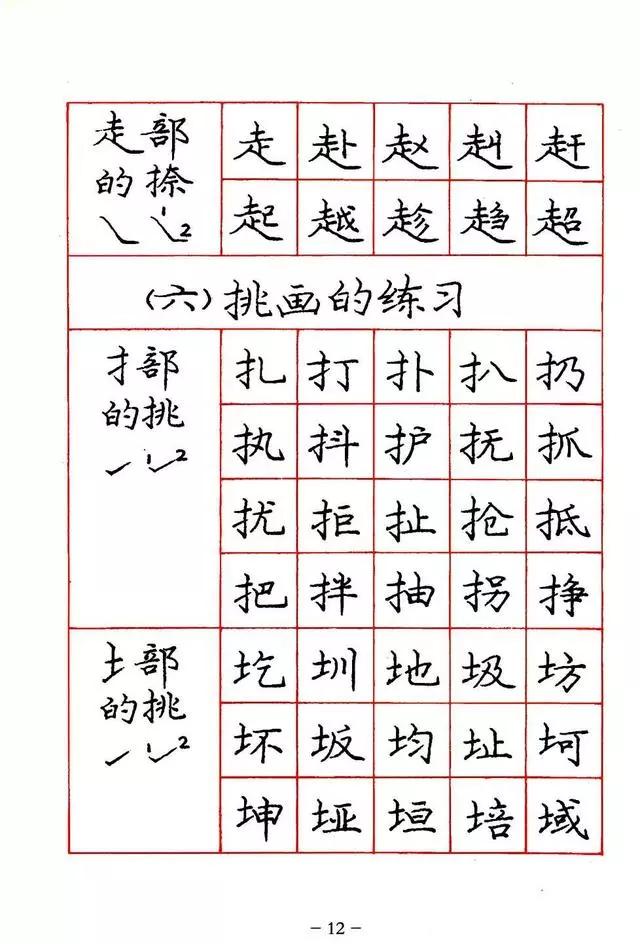 走部
的捺
1 2
走 赴 赵 赳 赶
起 越 趁 趋 超
(六)挑画的练习
扌部
的挑
1 2
扎 打 扑 扒 扔
执 抖 护 抚 抓
扰 拒 扯 抢 抵
把 拌 抽 拐 挣
土部
的挑
1 2
圪 圳 地 圾 坊
坏 坂 均 址 坷
坤 垭 垣 培 域
- 12 -